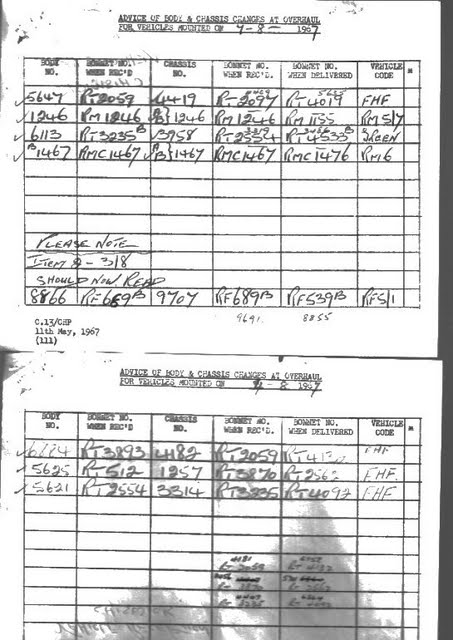 ADVICE OF BODY & CHASSIS CHANGES AT OVERHAUL
FOR VEHICLES MOUNTED ON 7-8- 1967
BODY NO. BONNET NO. WHEN REC'D CHASSIS NO. BONNET NO. WHEN REC'D. BONNET NO. WHEN DELIVERED VEHICLE CODE *
✓ 5647 RT2059 4419 RT2097 RT4019 FHF
✓ 1246 RM1246 B}1246 RM1246 RM1155 RM5/7
✓ 6113 RT3235 3958 RT2554 RT4533 GREEN
✓ 1467 RMC1467 A B}1467 RMC1467 RMC1476 RM6
PLEASE NOTE
ITEM 2 - 3/8
SHOULD NOW READ
8866 RF689B 9707 RF689B RF539B RF5/1
9691 8855
C.13/CHP
11th May, 1967
(111)
ADVICE OF BODY & CHASSIS CHANGES AT OVERHAUL
FOR VEHICLES MOUNTED ON 4-8 1967
BODY NO. BONNET NO. WHEN REC'D. CHASSIS NO. BONNET NO. WHEN REC'D. BONNET NO. WHEN DELIVERED VEHICLE CODE *
✓ RT3893 4182 RT2059 FHF
✓ 5625 RT512 1257 RT3870 FHF
✓ 5621 RT2554 3314 RT3235 RT4092 FHF